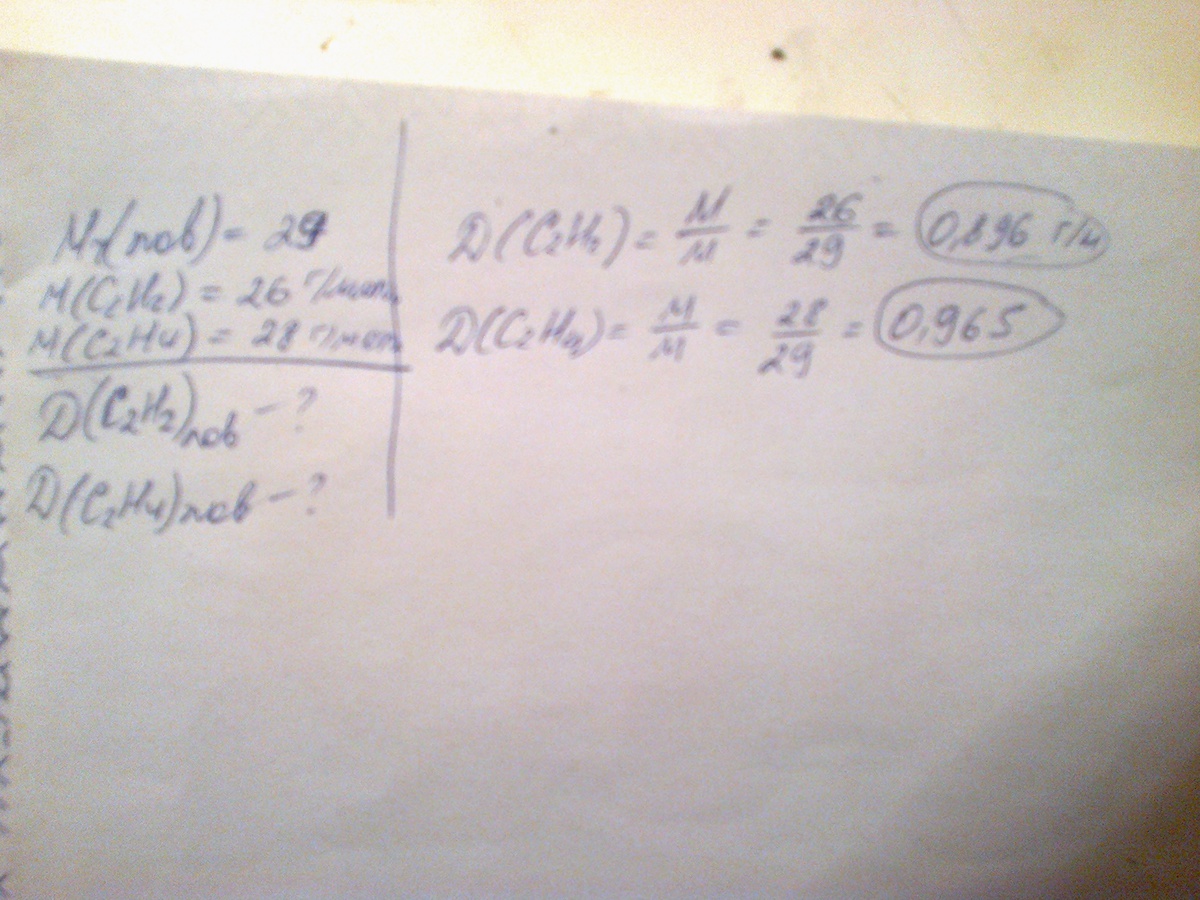 Mr(пов) = 29
M(C2H2) = 26 г/моль
M(C2H4) = 28 г/моль
D(C2H2)пов - ?
D(C2H4)пов - ?
D(C2H2) = M/M = 26/29 = 0,896 г/л
D(C2H4) = M/M = 28/29 = 0,965